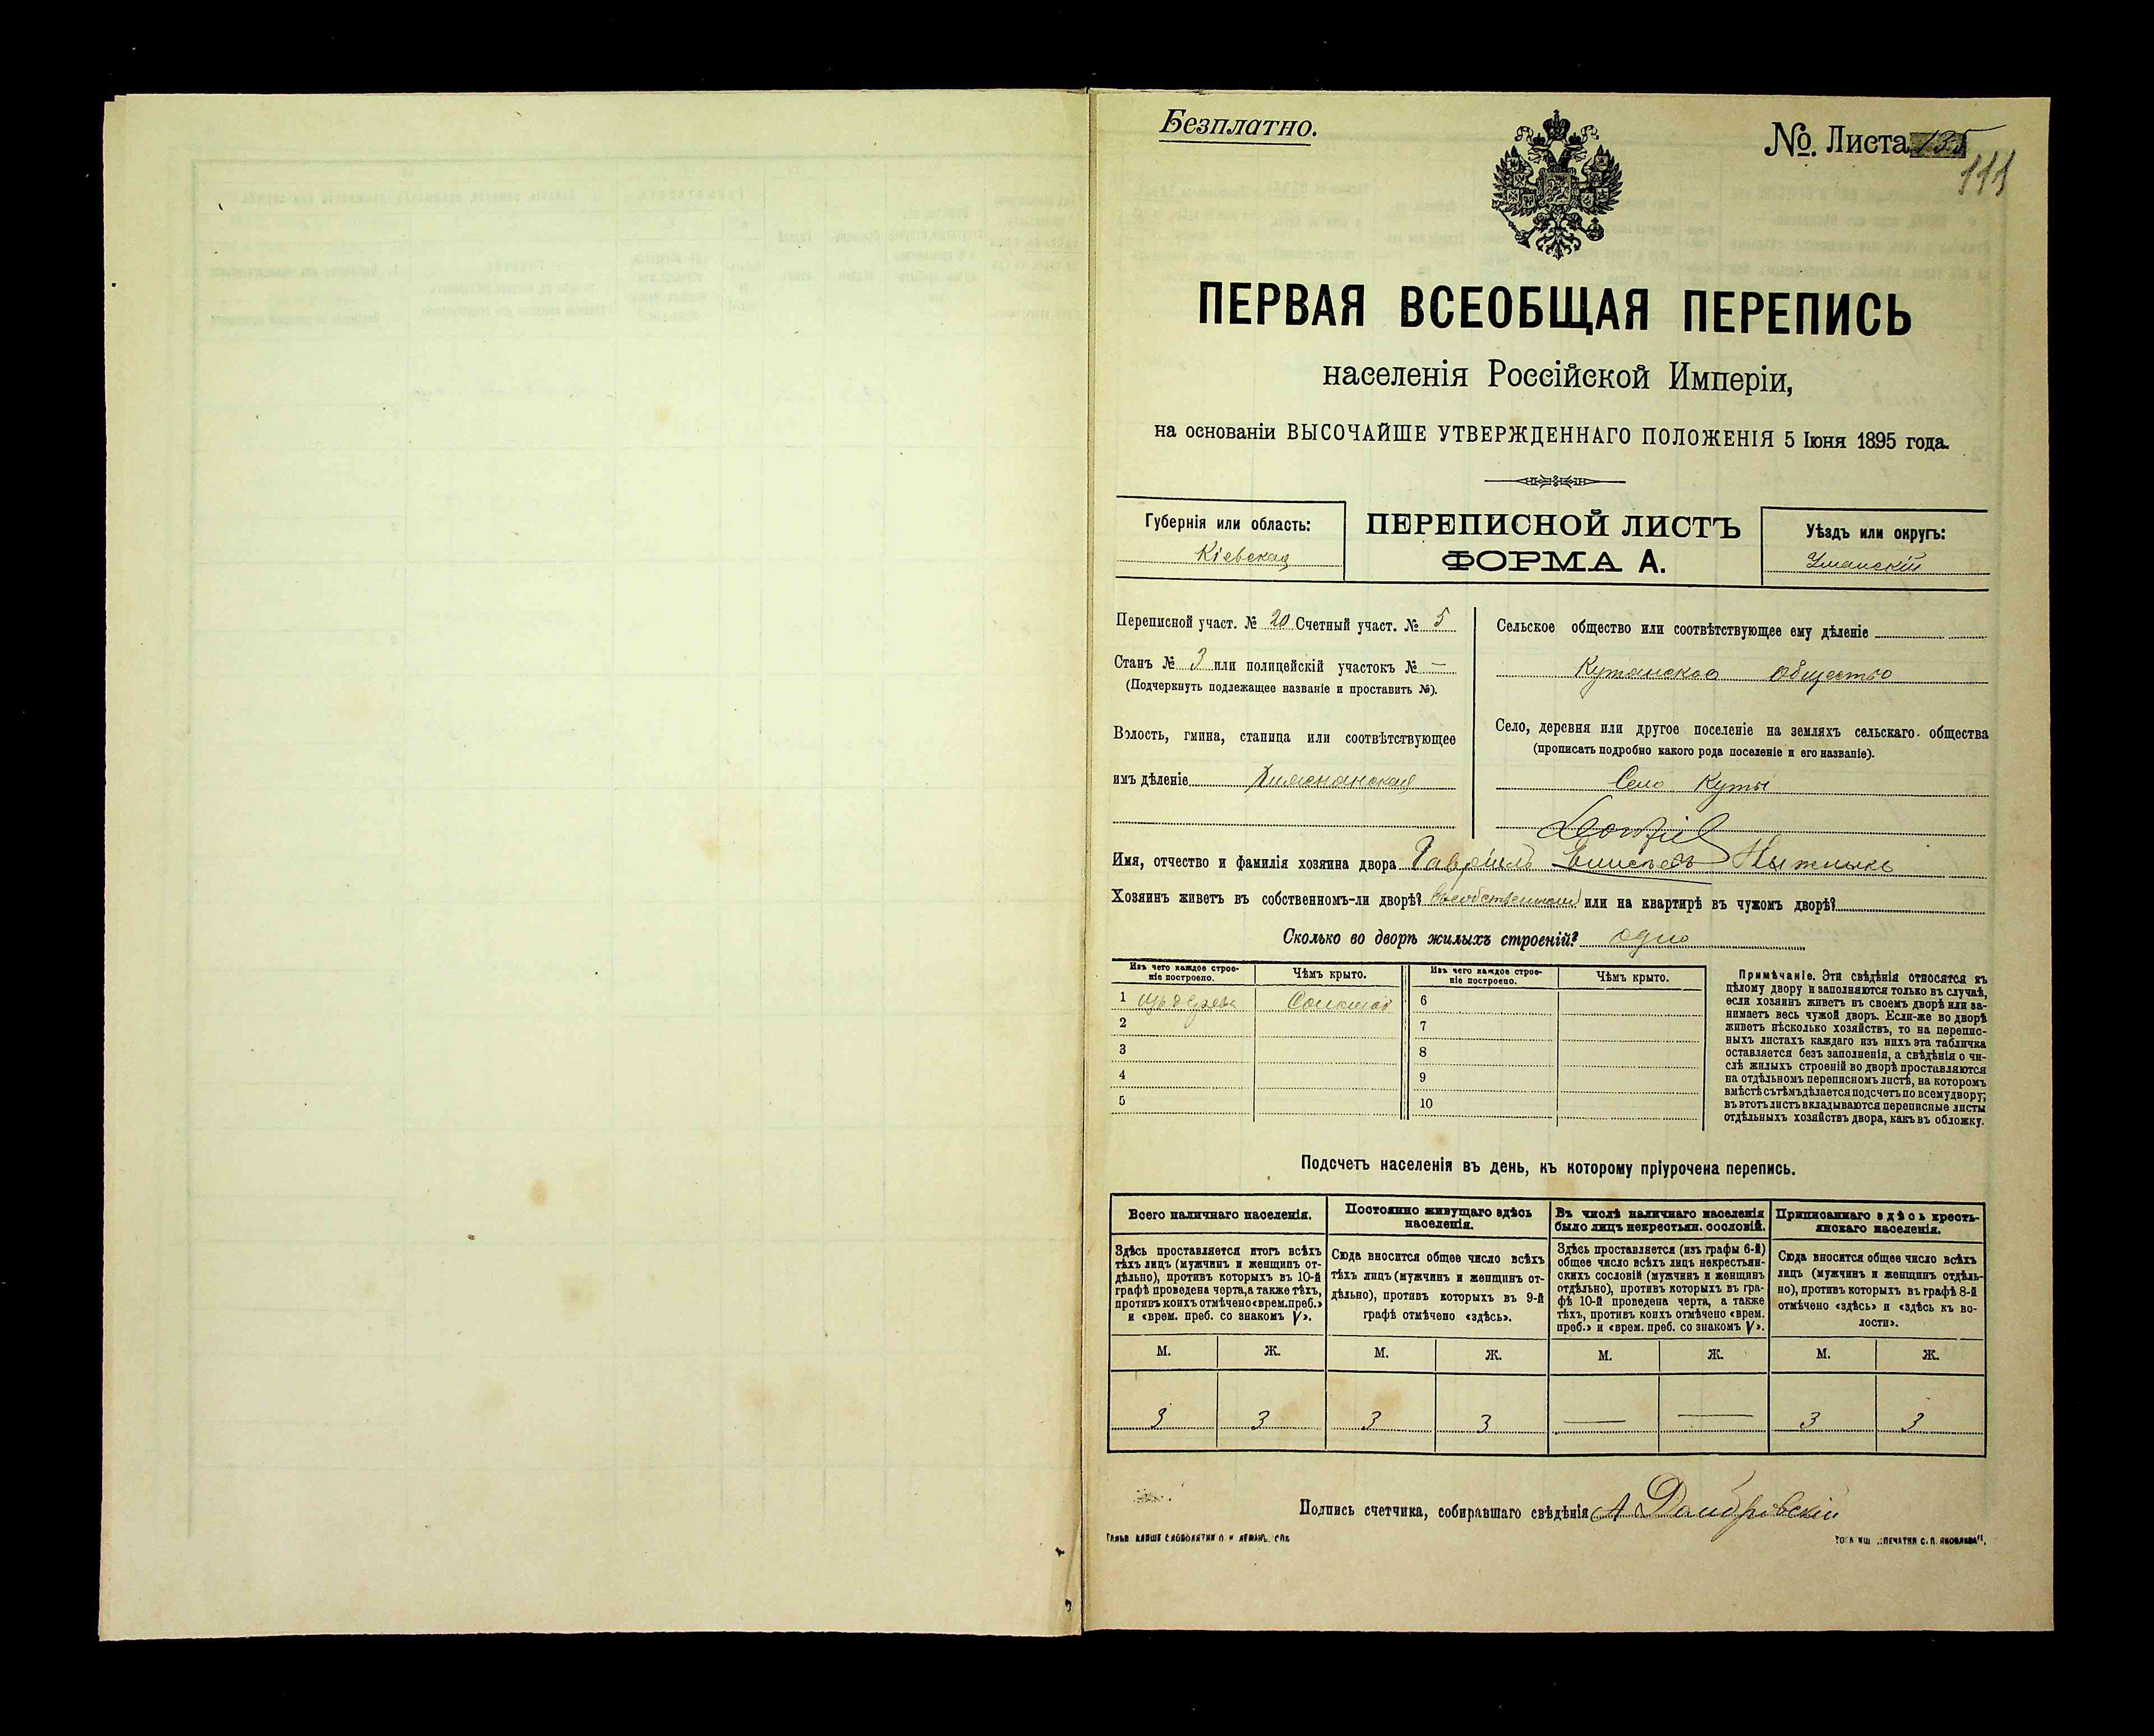 Безплатно.
№. Листа 135
111
ПЕРВАЯ ВСЕОБЩАЯ ПЕРЕПИСЬ
населенія Россійской Имперіи,
на основаніи ВЫСОЧАЙШЕ УТВЕРЖДЕННАГО ПОЛОЖЕНІЯ 5 Іюня 1895 года.
Губернія или область:
Кіевская
ПЕРЕПИСНОЙ ЛИСТЪ
ФОРМА А.
Уѣздъ или округъ:
Уманскій
Переписной участ. № 20 Счетный участ. № 5
Станъ № 3 или полицейскій участокъ № —
(Подчеркнуть подлежащее названіе и проставить №).
Волость, гмина, станица или соотвѣтствующее
имъ дѣленіе
Сельское общество или соотвѣтствующее ему дѣленіе
Кутянское Общество
Село, деревня или другое поселеніе на земляхъ сельскаго общества
(прописать подробно какого рода поселеніе и его названіе).
Село Куты
Имя, отчество и фамилія хозяина двора Гавріилъ
Хозяинъ живетъ въ собственномъ-ли дворѣ? Въ собственномъ или на квартирѣ въ чужомъ дворѣ?
Сколько во дворѣ жилыхъ строеній? одно
Изъ чего каждое строе-
ніе построено.
Чѣмъ крыто.
Изъ чего каждое строе-
ніе построено.
Чѣмъ крыто.
1 изъ дерева Соломой 6
2 7
3 8
4 9
5 10
Примѣчаніе. Эти свѣдѣнія относятся къ
цѣлому двору и заполняются только въ случаѣ,
если хозяинъ живетъ въ своемъ дворѣ или за-
нимаетъ весь чужой дворъ. Если-же во дворѣ
живетъ нѣсколько хозяйствъ, то на перепис-
ныхъ листахъ каждаго изъ нихъ эта табличка
оставляется безъ заполненія, а свѣдѣнія о чи-
слѣ жилыхъ строеній во дворѣ проставляются
на отдѣльномъ переписномъ листѣ, на которомъ
вмѣстѣ съ тѣмъ дѣлается подсчетъ по всему двору;
въ этотъ листъ вкладываются переписные листы
отдѣльныхъ хозяйствъ двора, какъ въ обложку.
Подсчетъ населенія въ день, къ которому пріурочена перепись.
Всего наличнаго населенія.
Здѣсь проставляется итогъ всѣхъ
тѣхъ лицъ (мужчинъ и женщинъ от-
дѣльно), противъ которыхъ въ 10-й
графѣ проведена черта, а также тѣхъ,
противъ коихъ отмѣчено «врем. преб.»
и «врем. преб. со знакомъ V».
Постоянно живущаго здѣсь
населенія.
Сюда вносится общее число всѣхъ
тѣхъ лицъ (мужчинъ и женщинъ от-
дѣльно), противъ которыхъ въ 9-й
графѣ отмѣчено «здѣсь».
Въ числѣ наличнаго населенія
было лицъ некрестьян. сословій.
Здѣсь проставляется (изъ графы 6-й)
общее число всѣхъ лицъ некрестьян-
скихъ сословій (мужчинъ и женщинъ
отдѣльно), противъ которыхъ въ гра-
фѣ 10-й проведена черта, а также
тѣхъ, противъ коихъ отмѣчено «врем.
преб.» и «врем. преб. со знакомъ V».
Приписаннаго здѣсь кресть-
янскаго населенія.
Сюда вносится общее число всѣхъ
лицъ (мужчинъ и женщинъ отдѣль-
но), противъ которыхъ въ графѣ 8-й
отмѣчено «здѣсь» и «здѣсь къ во-
лости».
М. Ж. М. Ж. М. Ж. М. Ж.
3 3 3 3 — — 3 3
Подпись счетчика, собиравшаго свѣдѣнія А Домбровскій